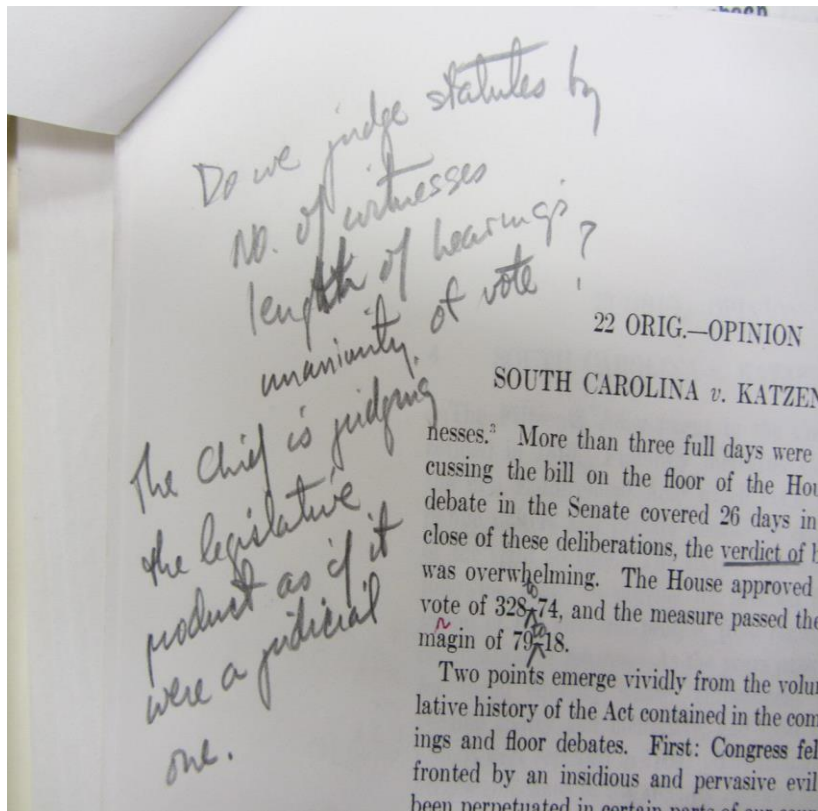 Do we judge statutes by
No. of witnesses
length of hearings
unanimity of vote ?
The Chief is judging
the legislative
product as if it
were a judicial
one.
22 ORIG.—OPINION
SOUTH CAROLINA v. KATZEN
nesses.³ More than three full days were
cussing the bill on the floor of the Hou
debate in the Senate covered 26 days in
close of these deliberations, the verdict of b
was overwhelming. The House approved
to
vote of 328-74, and the measure passed the
to
magin of 79-18.
Two points emerge vividly from the volu
lative history of the Act contained in the com
ings and floor debates. First: Congress fel
fronted by an insidious and pervasive evil
been perpetuated in certain parts of our